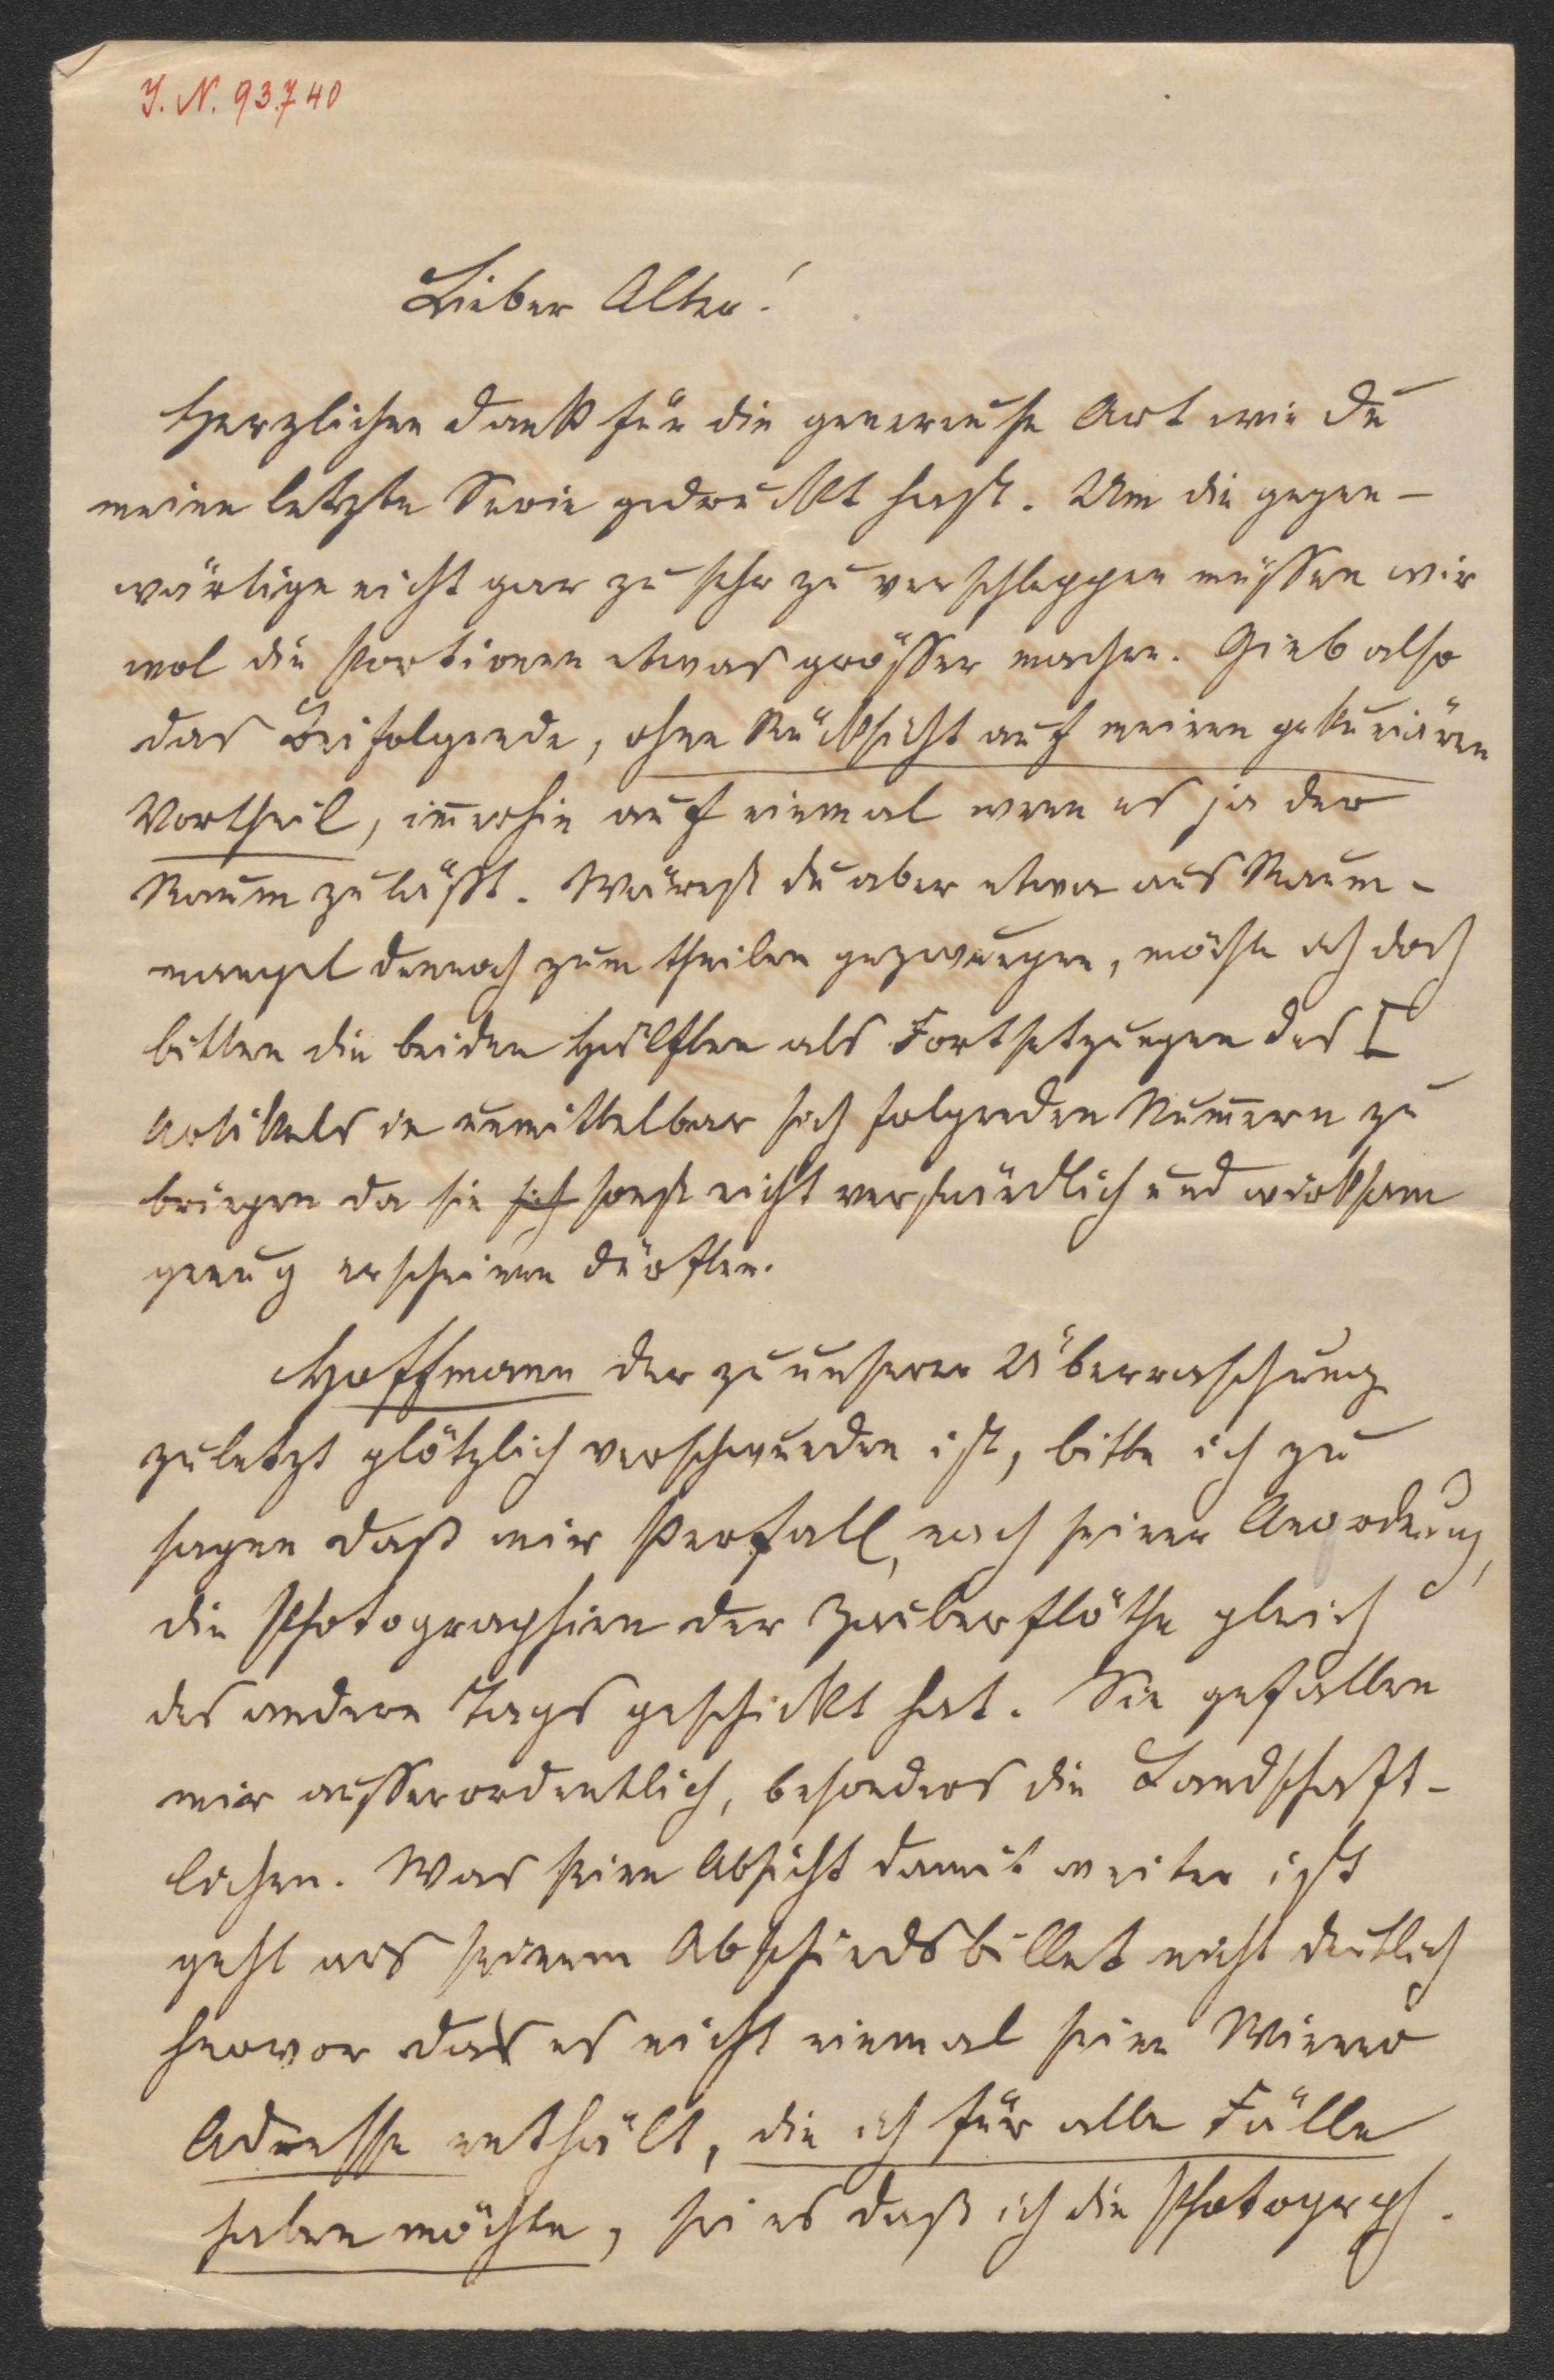 J. N. 93.740
Lieber Alter!
Herzlichen Dank für die genereuse Art wie Du
meine letzte Serie gedruckt hast. Um die gegen-
wärtige nicht gar zu sehr zu verschleppen müssen wir
wol die Portionen etwas grösser machen. Gieb also
das Beifolgende, ohne Rücksicht auf meinen pekuniären
Vortheil, im̅erhin auf einmal wenn es ja der
Raum zuläßt. Wärest du aber etwa aus Raum-
mangel dennoch zum theilen gezwungen, möchte ich doch
bitten die beiden Hälften als Fortsetzungen des I
Artikels in unmittelbar sich folgenden Num̅ern zu
bringen da sie sich sonst nicht verständlich und wirksam
genug erscheinen dürften.
Hoffmann der zu unserer Überraschung
zuletzt plötzlich verschwunden ist, bitte ich zu
sagen daß mir Perfall, nach seiner Anordnung,
die Photographien der Zauberflöthe gleich
des andern Tags geschickt hat. Sie gefallen
mir ausserordentlich, besonders die Landschaft-
lichen. Was seine Absicht damit weiter ist
geht aus seinem Abschiedsbillet nicht deutlich
hervor das es nicht einmal seine Wiener
Adresse enthält, die ich für alle Fälle
haben möchte, sei es daß ich die Photograph.